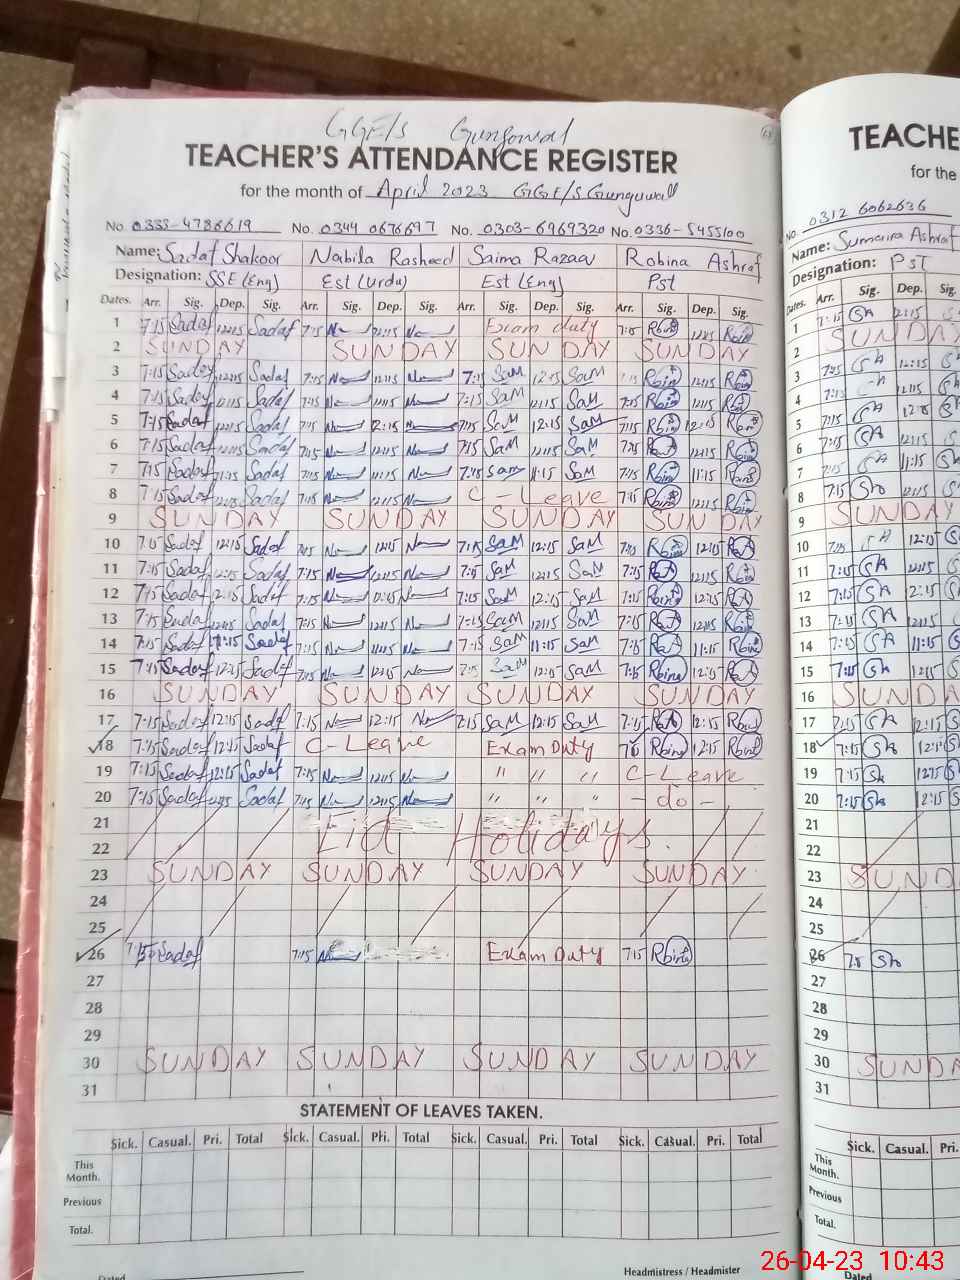 GGE/S Gungowal
TEACHER'S ATTENDANCE REGISTER
for the month of April 2023 GGE/S Gunguwall
No. 0333-4786619 No. 0344 0676697 No. 0303-6969320 No. 0336-5455100
Name: Sadaf Shakoor Nabila Rasheed Saima Razaq Robina Ashraf
Designation: SSE (Eng) Est (Urdu) Est (Eng) Pst
Dates. Arr. Sig. Dep. Sig. Arr. Sig. Dep. Sig. Arr. Sig. Dep. Sig. Arr. Sig. Dep. Sig.
1 7:15 Sadaf 12:15 Sadaf 7:15 12:15 Exam duty 7:15 Rbina 12:15 Rbina
2 SUNDAY SUNDAY SUNDAY SUNDAY
3 7:15 Sadaf 12:15 Sadaf 7:15 12:15 7:15 SaM 12:15 SaM 7:15 Rbina 12:15 Rbina
4 7:15 Sadaf 12:15 Sadaf 7:15 12:15 7:15 SaM 12:15 SaM 7:15 Rbina 12:15
5 7:15 Sadaf 12:15 Sadaf 7:15 12:15 7:15 SaM 12:15 SaM 7:15 Rbina 12:15 Rbina
6 7:15 Sadaf 12:15 Sadaf 7:15 12:15 7:15 SaM 12:15 SaM 7:15 12:15 Rbina
7 7:15 Sadaf 11:15 Sadaf 7:15 11:15 7:15 Sam 11:15 SaM 7:15 Rbina 11:15 Rbina
8 7:15 Sadaf 12:15 Sadaf 7:15 12:15 C-Leave 7:15 Rbina 12:15 Rbina
9 SUNDAY SUNDAY SUNDAY SUNDAY
10 7:15 Sadaf 12:15 Sadaf 7:15 12:15 7:15 SaM 12:15 SaM 7:15 Rbina 12:15
11 7:15 Sadaf 12:15 Sadaf 7:15 12:15 7:15 SaM 12:15 SaM 7:15 12:15 Rbina
12 7:15 Sadaf 12:15 Sadaf 7:15 12:15 7:15 SaM 12:15 SaM 7:15 Rbina 12:15
13 7:15 Sadaf 12:15 Sadaf 7:15 12:15 7:15 SaM 12:15 SaM 7:15 12:15 Rbina
14 7:15 Sadaf 11:15 Sadaf 7:15 11:15 7:15 SaM 11:15 SaM 7:15 11:15 Rbina
15 7:15 Sadaf 12:15 Sadaf 7:15 12:15 7:15 SaM 12:15 SaM 7:15 Rbina 12:15
16 SUNDAY SUNDAY SUNDAY SUNDAY
17 7:15 Sadaf 12:15 Sadaf 7:15 12:15 7:15 SaM 12:15 SaM 7:15 12:15 Rbina
18 7:15 Sadaf 12:15 Sadaf C-Leave Exam Duty 7:15 Rbina 12:15 Rbina
19 7:15 Sadaf 12:15 Sadaf 7:15 12:15 " " " C-Leave
20 7:15 Sadaf 12:15 Sadaf 7:15 12:15 " " " -do-
21 Eid Holidays.
22
23 SUNDAY SUNDAY SUNDAY SUNDAY
24
25
26 7:15 Sadaf 7:15 Exam Duty 7:15 Rbina
27
28
29
30 SUNDAY SUNDAY SUNDAY SUNDAY
31
STATEMENT OF LEAVES TAKEN.
Sick. Casual. Pri. Total Sick. Casual. Pri. Total Sick. Casual. Pri. Total Sick. Casual. Pri. Total
This Month.
Previous
Total.
Dated
Headmistress / Headmister
TEACHE
for the
No. 0312 6062636
Name: Sumaira Ashraf
Designation: Pst
Dates. Arr. Sig. Dep. Sig.
1 7:15 Sh 12:15
2 SUNDAY
3 7:15 Sh 12:15
4 7:15 12:15
5 7:15 Sh 12:15
6 7:15 Sh 12:15
7 7:15 Sh 11:15
8 7:15 Sh 12:15
9 SUNDAY
10 7:15 Sh 12:15
11 7:15 Sh 12:15
12 7:15 Sh 12:15
13 7:15 Sh 12:15
14 7:15 Sh 11:15
15 7:15 Sh 12:15
16 SUNDA
17 7:15 Sh 12:15
18 7:15 Sh 12:15
19 7:15 Sh 12:15
20 7:15 Sh 12:15
21
22
23 SUND
24
25
26 7:15 Sh
27
28
29
30 SUNDA
31
Sick. Casual. Pri.
This Month.
Previous
Total.
Dated
26-04-23 10:43